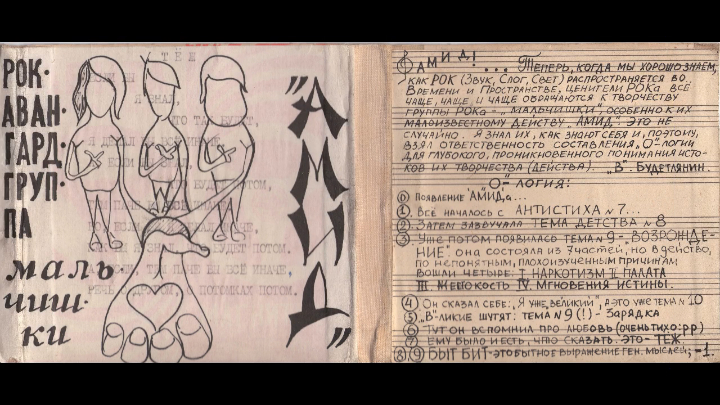 РОК-
АВАН-
ГАРД-
ГРУП-
ПА
маль
чиш-
ки
"АМИД"
ТЁШ
Я ЗНАЛ,
ЧТО ТАК БУДЕТ,
БУДЕТ ПОТОМ,
БУДЕТ ПОТОМ.
ВСЁ ИНАЧЕ,
О ПОТОМКАХ ПОТОМ.
АМИД! ... Теперь, когда мы хорошо знаем,
как РОК (Звук, Слог, Свет) распространяется во
Времени и Пространстве, ценители РОКа всё
чаще, чаще и чаще обращаются к творчеству
группы РОКа – "Мальчишки", особенно к их
малоизвестному действу "АМИД". Это не
случайно. Я знал их, как знают себя и, поэтому,
взял ответственность составления "О"-логии
для глубокого, проникновенного понимания исто-
ков их творчества (действа). "В" Будетлянин.
"О"-логия:
0 Появление "АМИД"а...
1 Всё началось с АНТИСТИХА №7...
2 Затем зазвучала ТЕМА ДЕТСТВА №8
3 Уже потом появилась ТЕМА №9 - "ВОЗРОЖДЕ-
НИЕ". Она состояла из 7 частей, но в действо,
по непонятным, плохоизученным причинам
вошли четыре: I НАРКОТИЗМ II ПАЛАТА
III ЖЕСТОКОСТЬ IV МГНОВЕНИЯ ИСТИНЫ.
4 Он сказал себе: "Я уже великий", а это уже тема №10
5 "В"-ликие шутят: тема №9 (!) - Зарядка
6 Тут он вспомнил про любовь (очень тихо: pp)
7 Ему было и есть, что сказать. Это - ТЁЖ.
8 9 БЫТ БИТ - это бытное выражение ген. мыслей; -1.